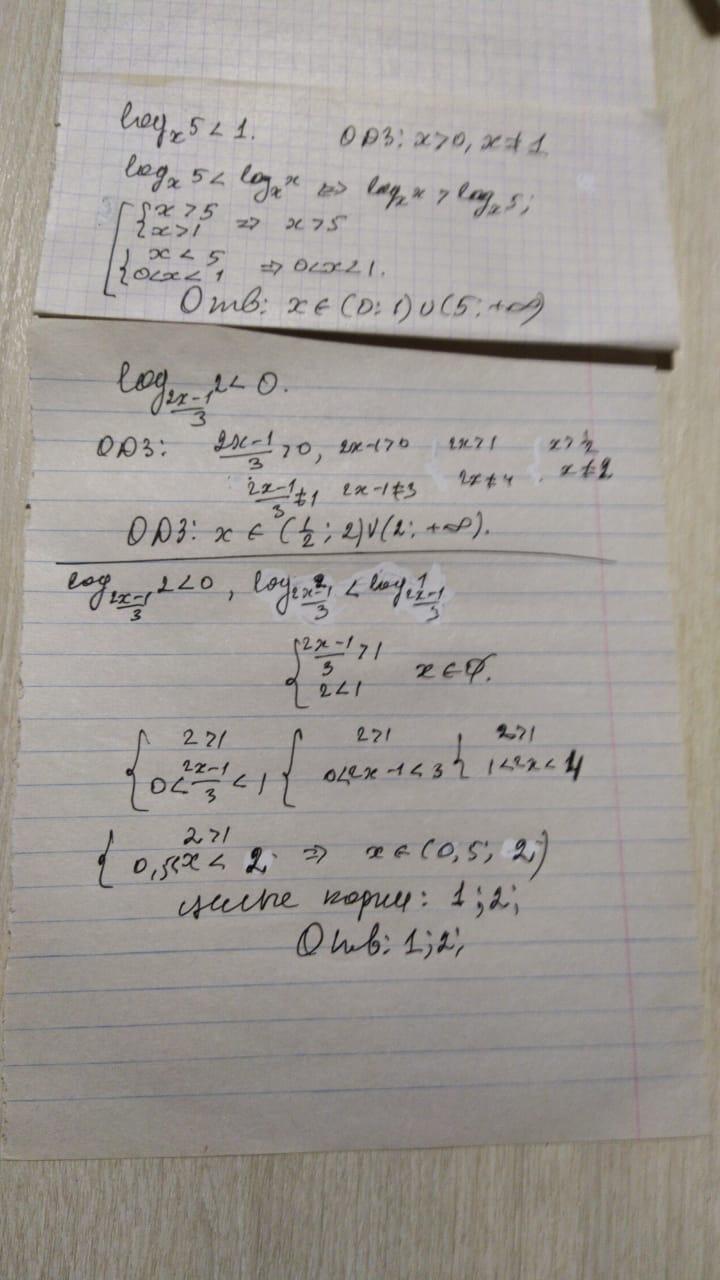 log_x 5 < 1. ОДЗ: x>0, x≠1
log_x 5 < log_x x ⇔ log_x x > log_x 5;
[ { x > 5
{ x>1 ⇒ x>5
{ x < 5
{ 0<x<1 ⇒ 0<x<1.
Отв: x ∈ (0; 1) ∪ (5; +∞)
log_{(2x-1)/3} 2 < 0.
ОДЗ: (2x-1)/3 >0, 2x-1>0 { 2x>1 { x>1/2
(2x-1)/3 ≠1 2x-1≠3 2x≠4 . x≠2
ОДЗ: x ∈ (1/2; 2)∪(2; +∞).
log_{(2x-1)/3} 2<0, log_{(2x-1)/3} 2 < log_{(2x-1)/3} 1
{ (2x-1)/3 >1
2<1 x ∈ ∅.
{ 2>1 { 2>1 { 2>1
0< (2x-1)/3 <1 0<2x-1<3 1<2x<4
{ 2>1
0,5<x< 2 ⇒ x ∈ (0,5; 2)
целые корни: 1;2;
Отв: 1;2;